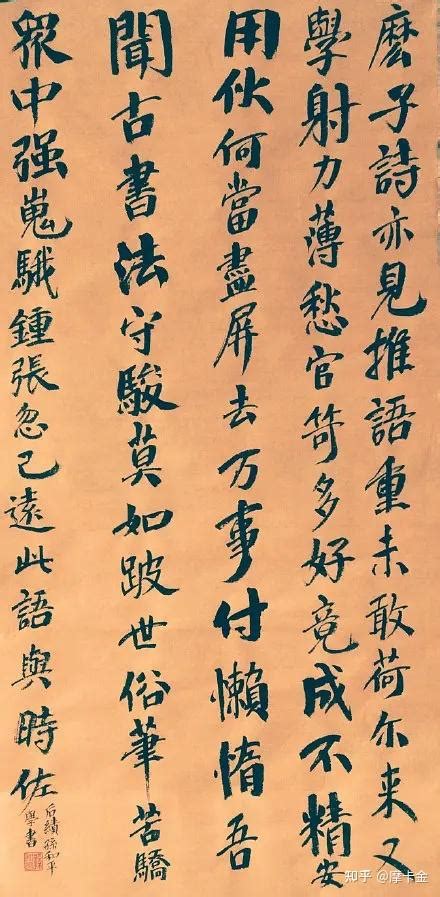 麽子詩亦見推語重未敢荷尔来又
學射力薄愁官笴多好竟成不精安
用伙何當盡屏去万事付懶惰吾
聞古書法守駿莫如跛世俗筆苦驕
眾中强嵬騀鍾張忽已遠此語與時佐
后續 孫和平
學書
知乎 @摩卡金